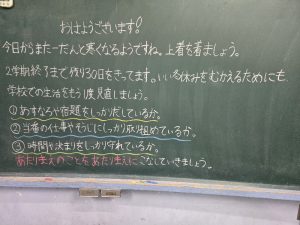 おはようございます!
今日からまた一だんと寒くなるようですね。上着を着ましょう。
2学期終了まで残り30日をきってます。いい冬休みをむかえるためにも、
学校での生活をもう1度見直しましょう。
①あすなろや宿題をしっかりだしているか。
②当番の仕事やそうじにしっかり取り組めているか。
③時間や決まりをしっかり守れているか。
あたり前のことをあたり前にこなしていきましょう。